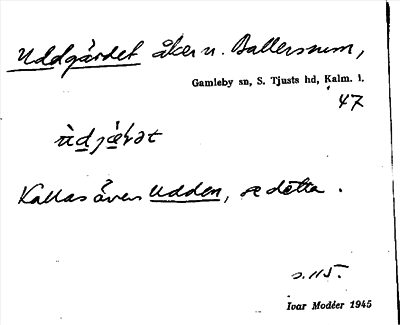 Uddgärdet åker u. Ballersrum,
Gamleby sn, S. Tjusts hd, Kalm. l.
47
Kallas även Udden, se detta.
s. 115.
Ivar Modéer 1945